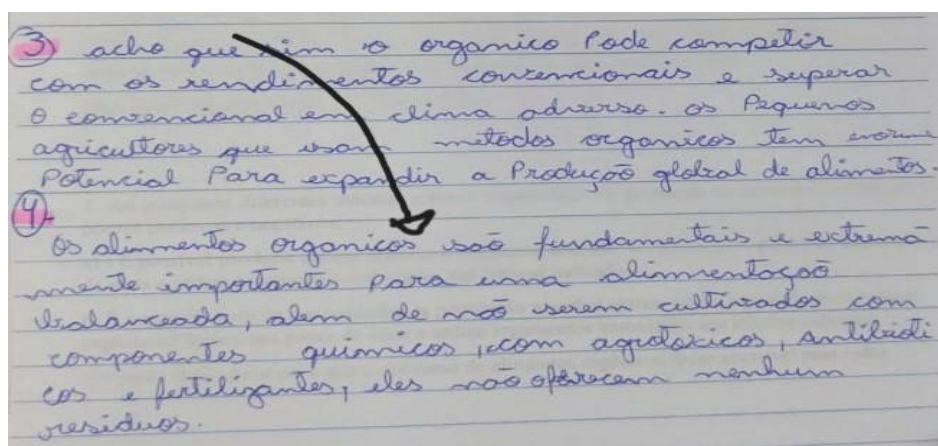 3) acho que sim o organico Pode competir
com os rendimentos convencionais e superar
O convencional em clima adverso. os Pequenos
agricultores que usam metodos organicos tem enorme
Potencial Para expandir a Produçaõ global de alimentos.
4)-
Os alimentos organicos saõ fundamentais e extrema
mente importantes para uma alimentaçaõ
balanceada, alem de naõ serem cultivados com
componentes quimicos, com agrotoxicos, antibioti
cos e fertilizantes, eles naõ oferecem nenhum
residuos.